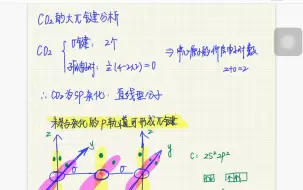 CO₂的大π键分析
CO₂ { σ键：2个
孤电子对：½(4-2×2)=0 ⇒ 中心原子的价层电子对数
2+0=2
∴ CO₂为SP杂化，直线型分子
未参与杂化的p轨道可形成π键
z y z y
C: 2S²2P²
O O O